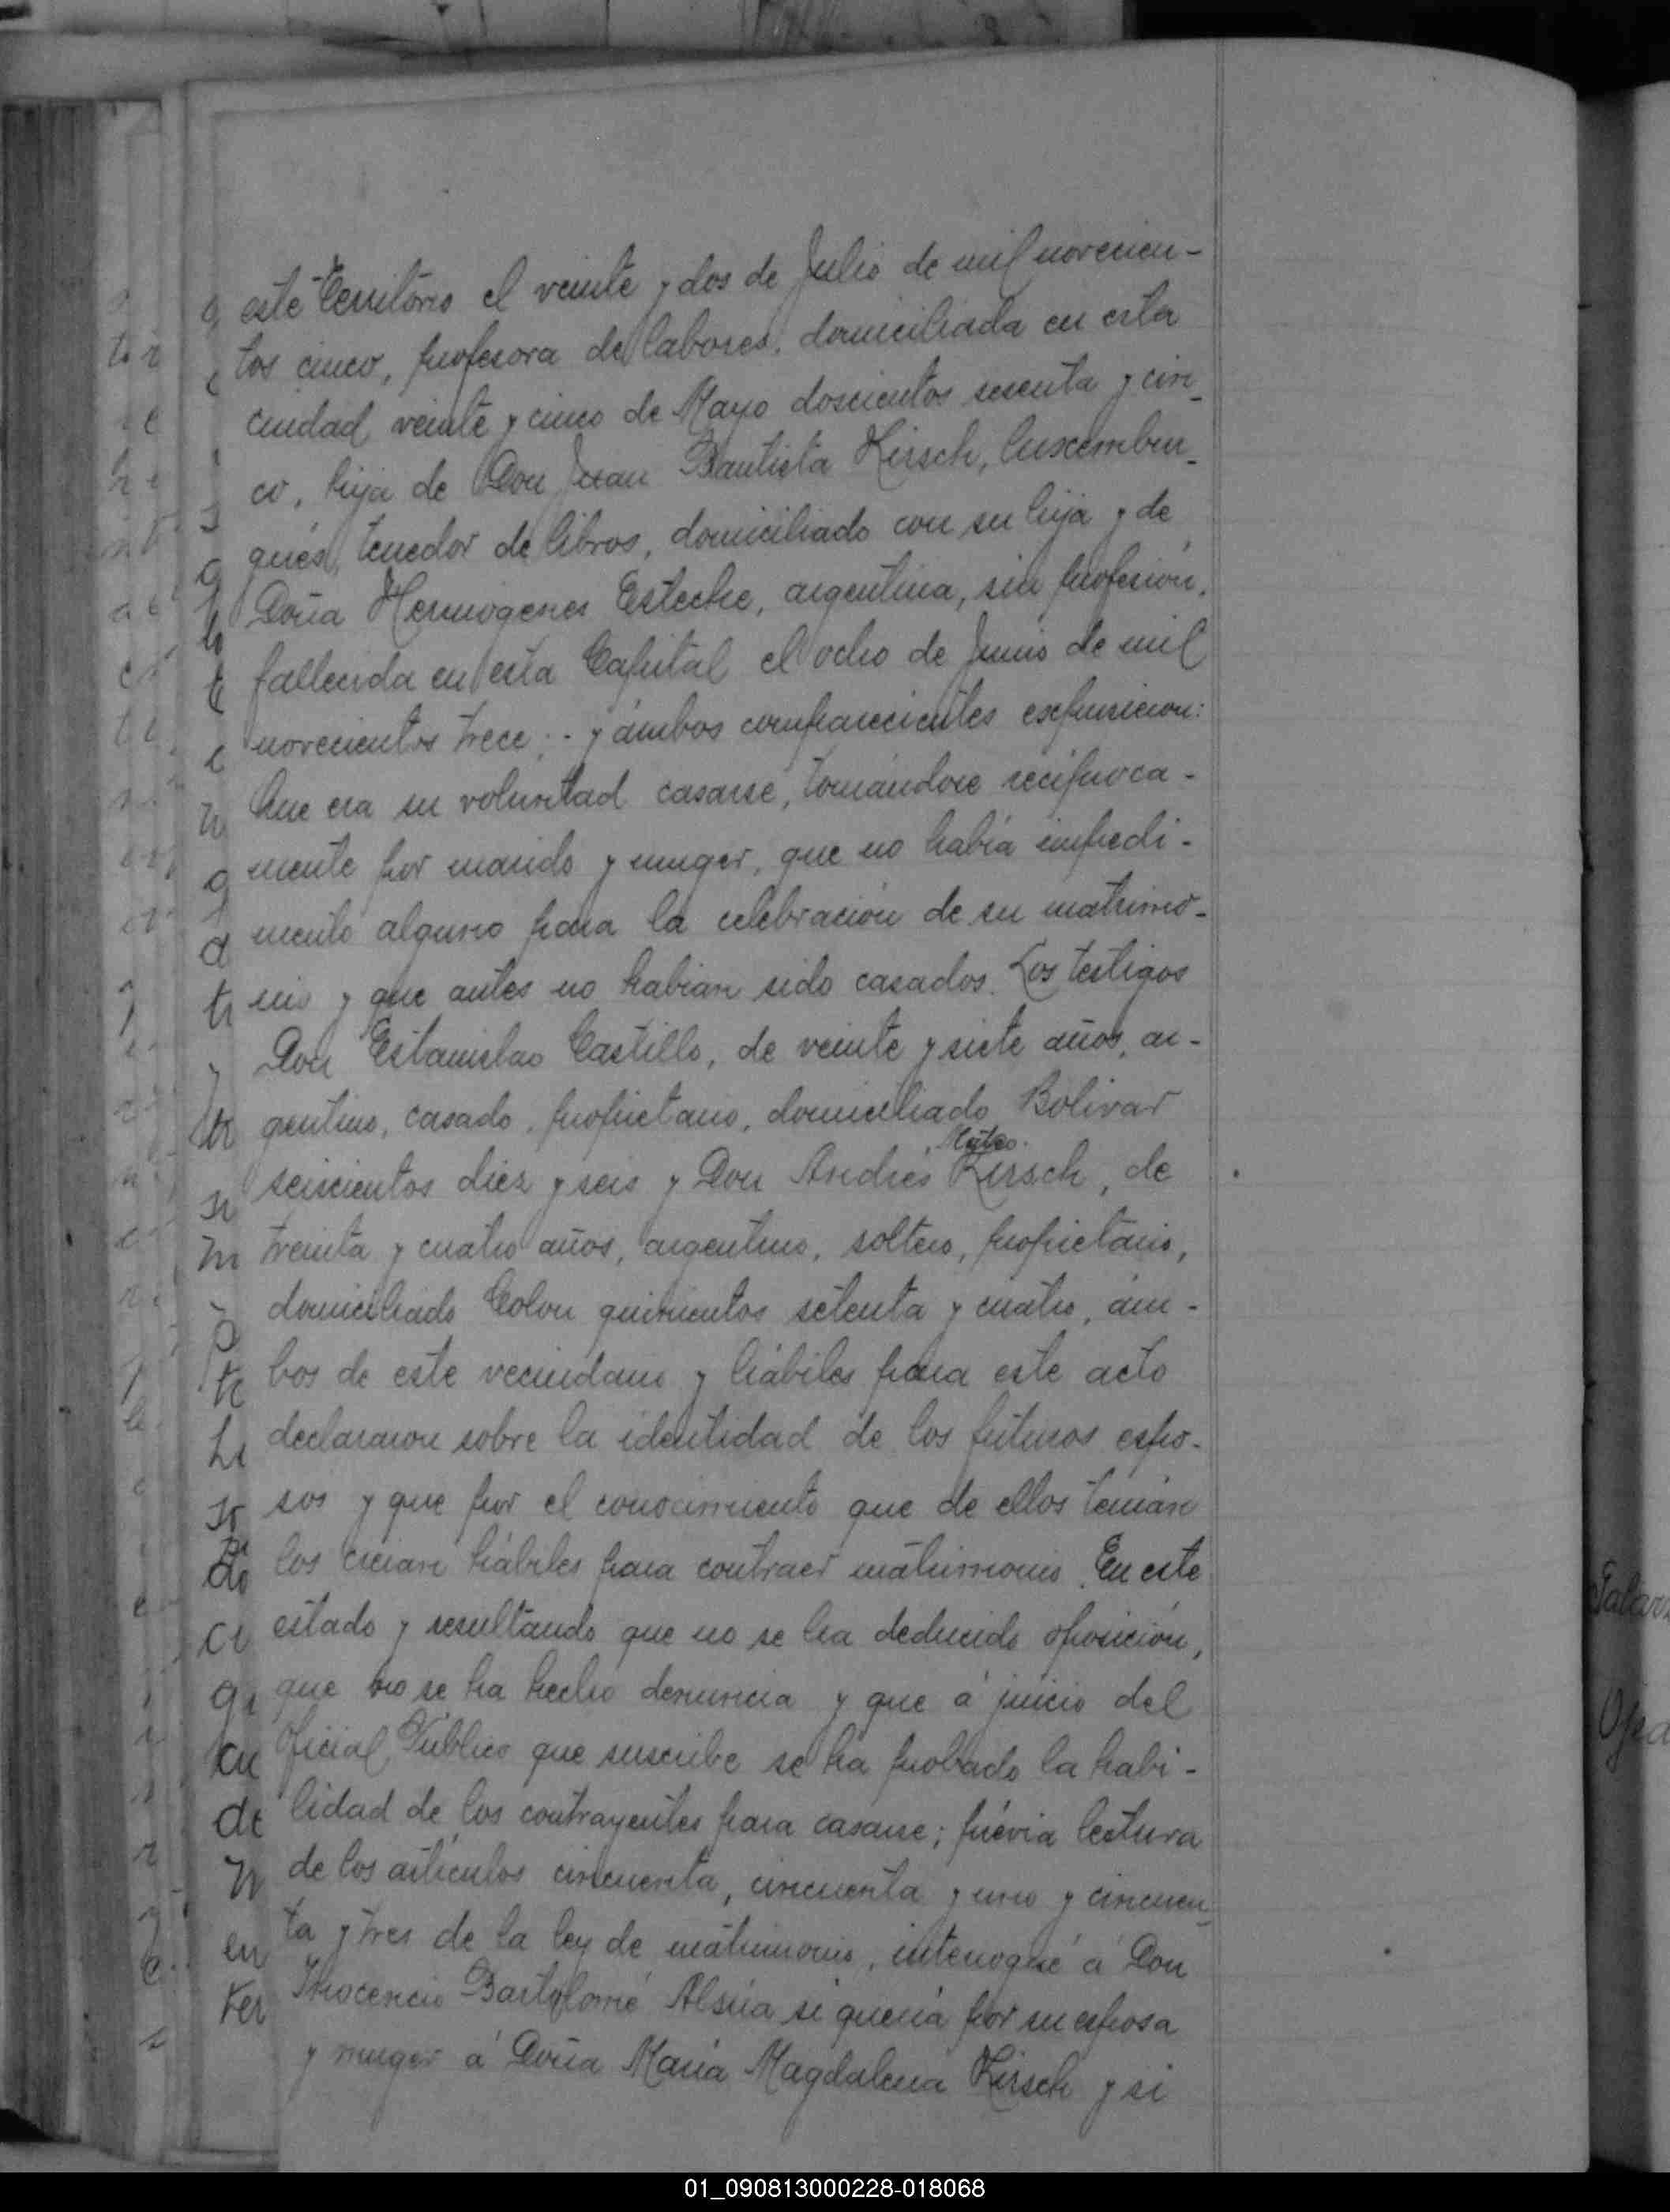 este Territorio el veinte y dos de Julio de mil novecien-
tos cinco, profesora de labores, domiciliada en esta
ciudad, veinte y cinco de Mayo doscientos sesenta y cin-
co, hija de Don Juan Bautista Kirsch, luxembur-
gués, tenedor de libros, domiciliado con su hija y de
Doña Hermógenes Esteche, argentina, sin profesión,
fallecida en esta Capital el ocho de Junio de mil
novecientos trece; - y ámbos comparecientes expusieron:
Que era su voluntad casarse, tomándose recíproca-
mente por marido y muger, que no había impedi-
mento alguno para la celebración de su matrimo-
nio y que antes no habían sido casados. Los testigos
Don Estanislao Castillo, de veinte y siete años, ar-
gentino, casado, propietario, domiciliado Bolivar
seiscientos diez y seis y Don Andrés Kirsch, de
treinta y cuatro años, argentino, soltero, propietario,
domiciliado Colon quinientos setenta y cuatro, ám-
bos de este vecindario y hábiles para este acto
declararon sobre la identidad de los futuros espo-
sos y que por el conocimiento que de ellos tenían
los creían hábiles para contraer matrimonio. En este
estado y resultando que no se ha deducido oposición,
que no se ha hecho denuncia y que á juicio del
Oficial Público que suscribe se ha probado la habi-
lidad de los contrayentes para casarse; prévia lectura
de los artículos cincuenta, cincuenta y uno y cincuen-
ta y tres de la ley de matrimonio, interrogué á Don
Inocencio Bartolomé Alsúa si quería por su esposa
y muger á Doña María Magdalena Kirsch y si
01_090813000228-018068